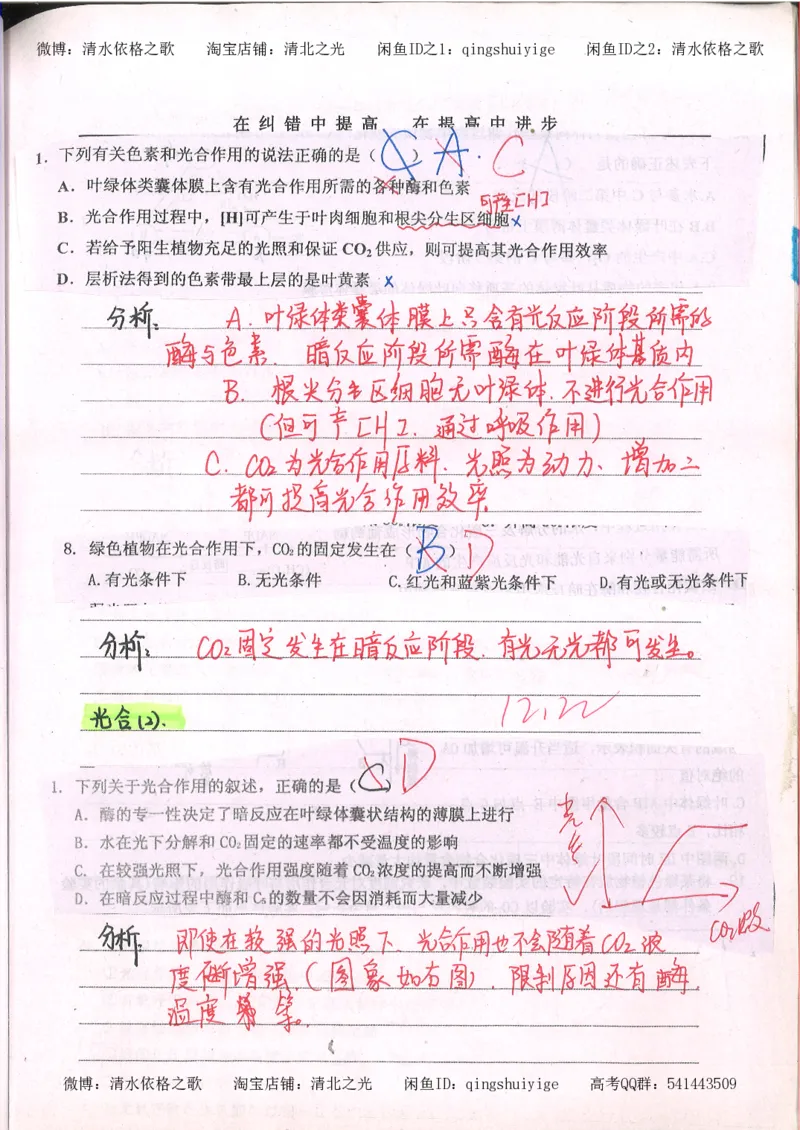 微博：清水依格之歌 淘宝店铺：清北之光 闲鱼ID之1：qingshuiyige 闲鱼ID之2：清水依格之歌
在纠错中提高 在提高中进步
1. 下列有关色素和光合作用的说法正确的是（C）A. C
A. 叶绿体类囊体膜上含有光合作用所需的各种酶和色素
可产生[H]
B. 光合作用过程中，[H]可产生于叶肉细胞和根尖分生区细胞 x
C. 若给予阳生植物充足的光照和保证 CO₂ 供应，则可提高其光合作用效率
D. 层析法得到的色素带最上层的是叶黄素 x
分析：A. 叶绿体类囊体膜上只含有光反应阶段所需的
酶与色素. 暗反应阶段所需酶在叶绿体基质内
B. 根尖分生区细胞无叶绿体. 不进行光合作用
(但可产[H]. 通过呼吸作用)
C. CO₂为光合作用原料. 光照为动力、增加二
都可提高光合作用效率
8. 绿色植物在光合作用下，CO₂的固定发生在（B）D
A. 有光条件下 B. 无光条件 C. 红光和蓝紫光条件下 D. 有光或无光条件下
分析：CO₂固定发生在暗反应阶段. 有光无光都可发生。
光合(2).
12.22
1. 下列关于光合作用的叙述，正确的是（C）D
A. 酶的专一性决定了暗反应在叶绿体囊状结构的薄膜上进行
B. 水在光下分解和 CO₂ 固定的速率都不受温度的影响
C. 在较强光照下，光合作用强度随着 CO₂ 浓度的提高而不断增强
D. 在暗反应过程中酶和 C₅ 的数量不会因消耗而大量减少
光合
CO₂吸
分析：即使在较强的光照下. 光合作用也不会随着CO₂浓
度不断增强.(图象如右图). 限制原因还有酶.
温度等。
微博：清水依格之歌 淘宝店铺：清北之光 闲鱼ID：qingshuiyige 高考QQ群：541443509